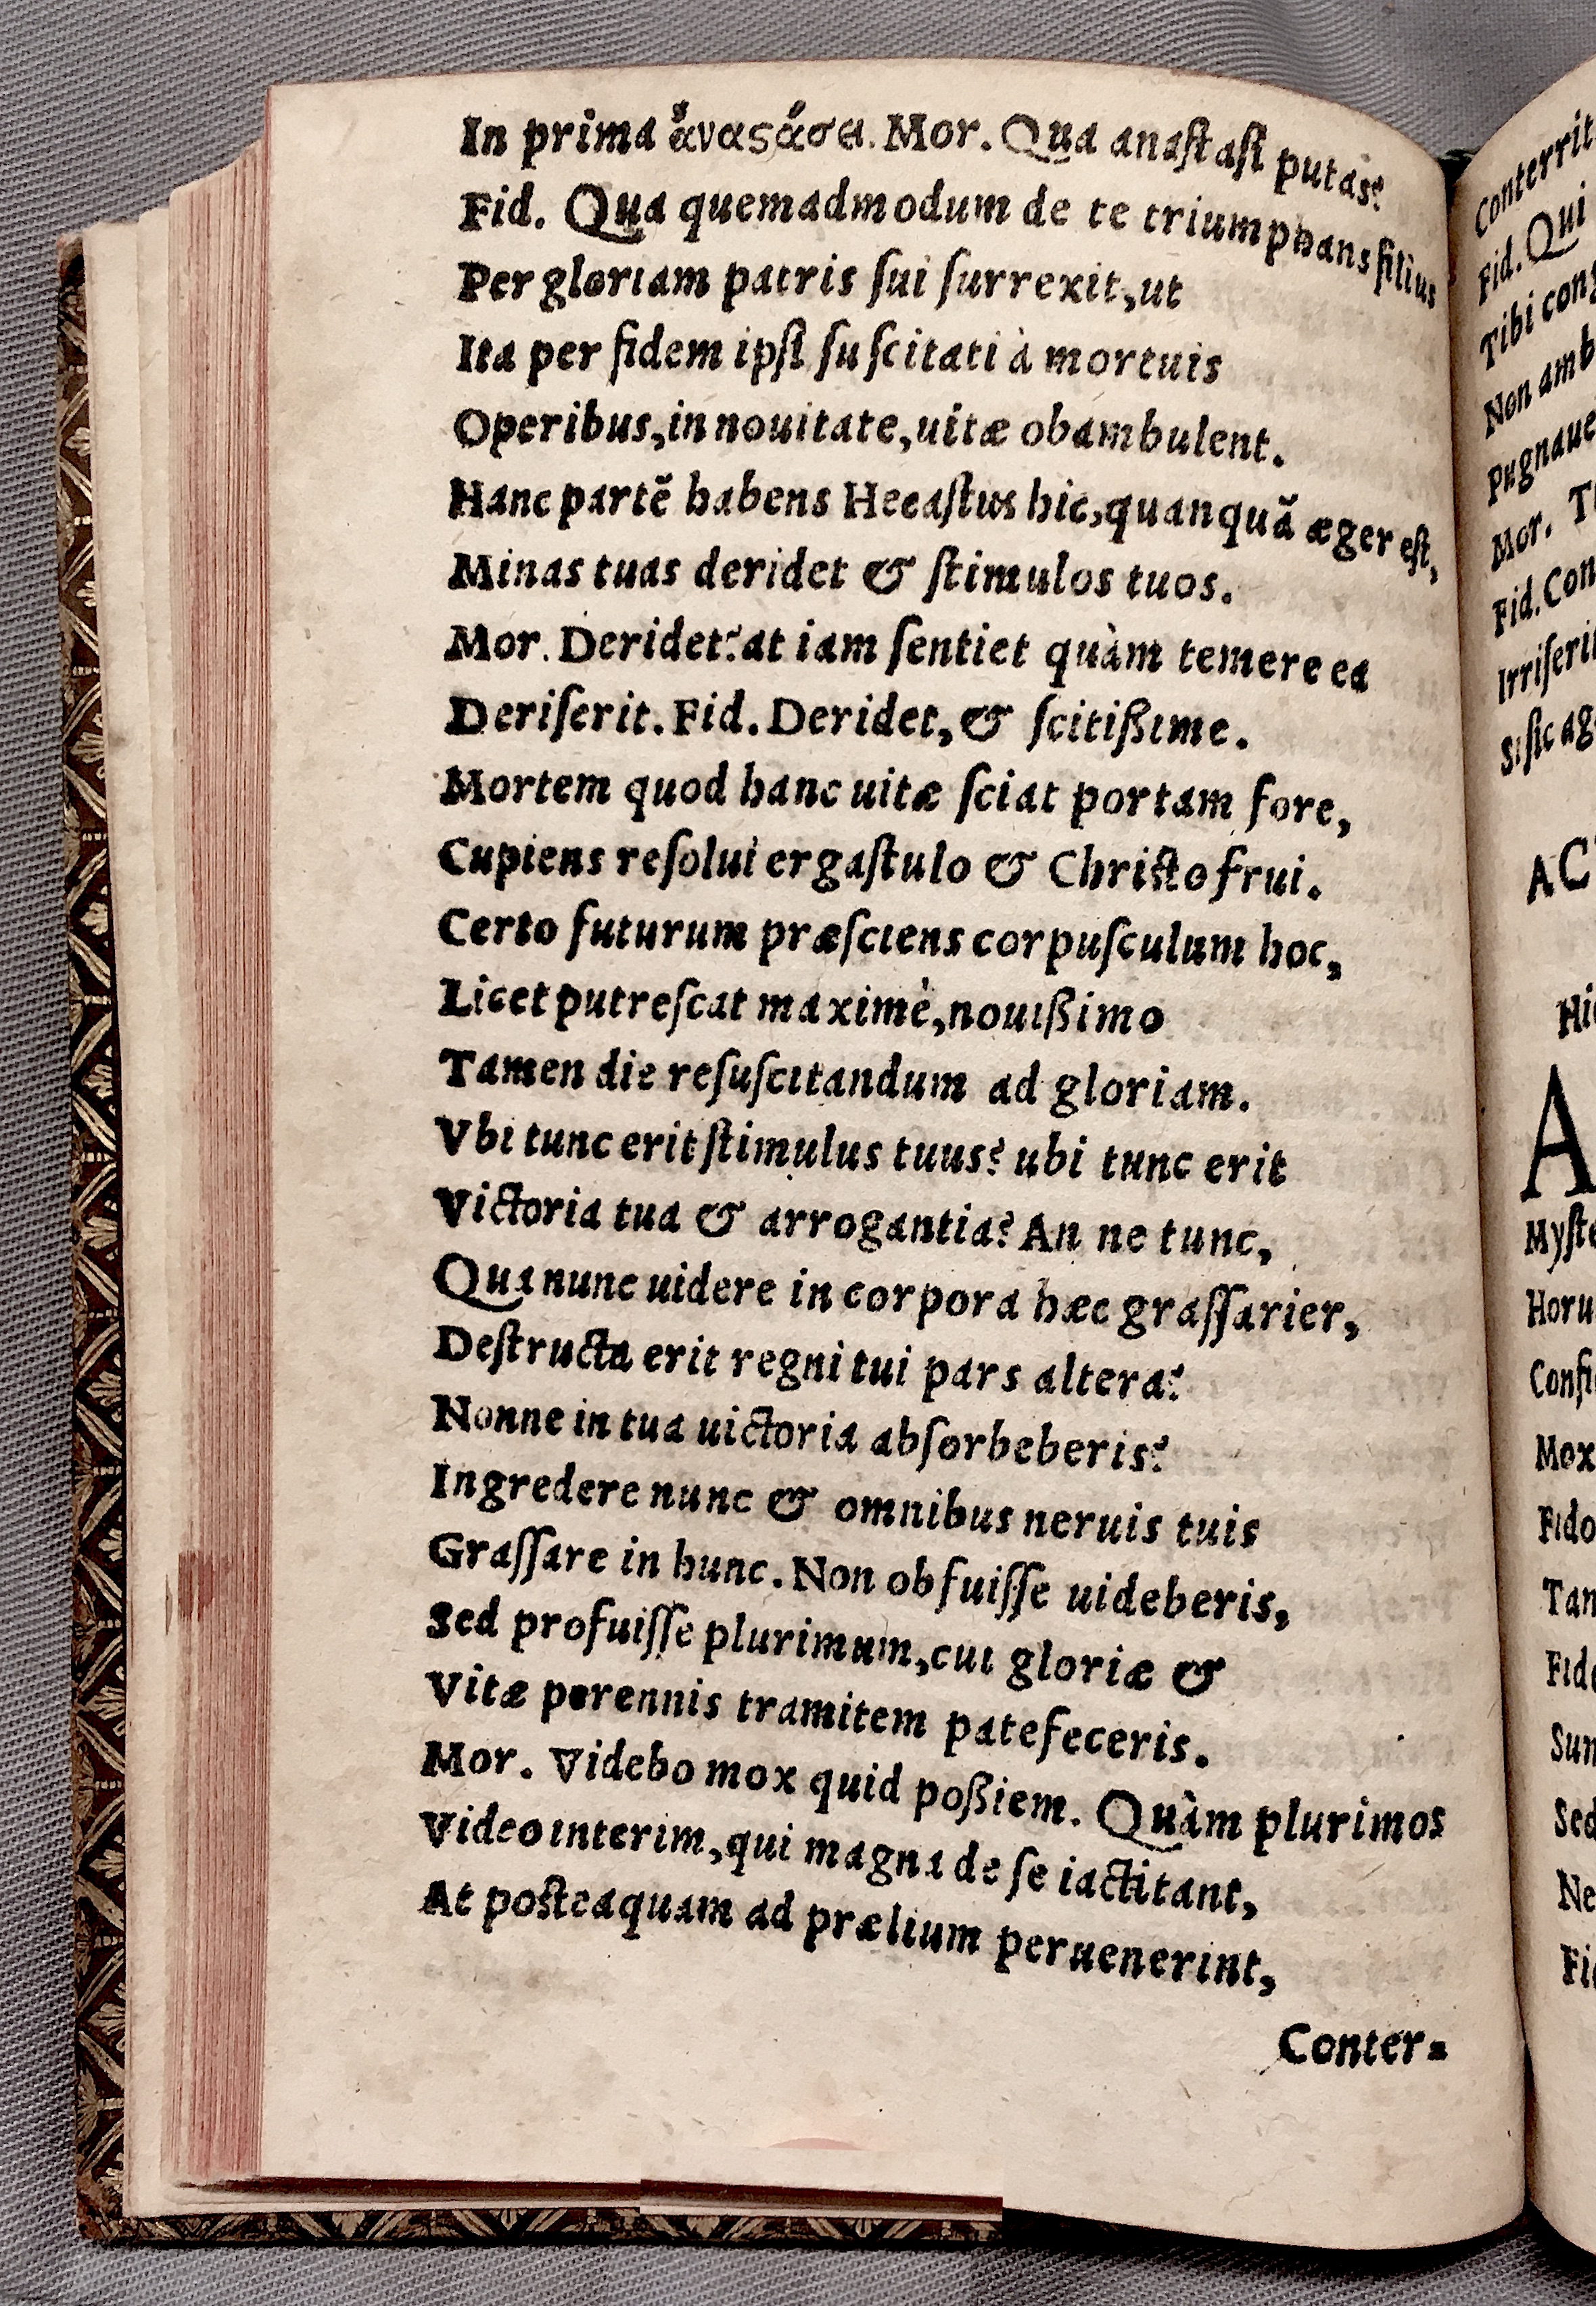 In prima ἀναϛάσει. Mor. Qua anaſtaſi putas?
Fid. Qua quemadmodum de te triumphans filius
Per gloriam patris ſui ſurrexit, ut
Ita per fidem ipſi ſuſcitati à mortuis
Operibus, in nouitate, uitæ obambulent.
Hanc partē habens Hecaſtus hic, quanquā æger eſt,
Minas tuas deridet & ſtimulos tuos.
Mor. Deridet? at iam ſentiet quàm temere ea
Deriſerit. Fid. Deridet, & ſcitißime.
Mortem quod hanc uitæ ſciat portam fore,
Cupiens reſolui ergaſtulo & Chriſto frui.
Certo futurum præſciens corpuſculum hoc,
Licet putreſcat maximè, nouißimo
Tamen die reſuſcitandum ad gloriam.
Vbi tunc erit ſtimulus tuus? ubi tunc erit
Victoria tua & arrogantia? An ne tunc,
Qua nunc uidere in corpora hæc graſſarier,
Deſtructa erit regni tui pars altera?
Nonne in tua uictoria abſorbeberis?
Ingredere nunc & omnibus neruis tuis
Graſſare in hunc. Non obfuiſſe uideberis,
Sed profuiſſe plurimum, cui gloriæ &
Vitæ perennis tramitem patefeceris.
Mor. Videbo mox quid poßiem. Quàm plurimos
Video interim, qui magna de ſe iactitant,
At poſteaquam ad prælium peruenerint,
Conter-
Conterrit
Fid. Qui
Tibi cong
Non amb
Pugnaue
Mor. T
Fid. Con
Irriſeri
Si ſic ag
AC
Hi
A
Myſte
Horu
Confi
Mox
Fido
Tan
Fide
Sum
Sed
Ne
Fi